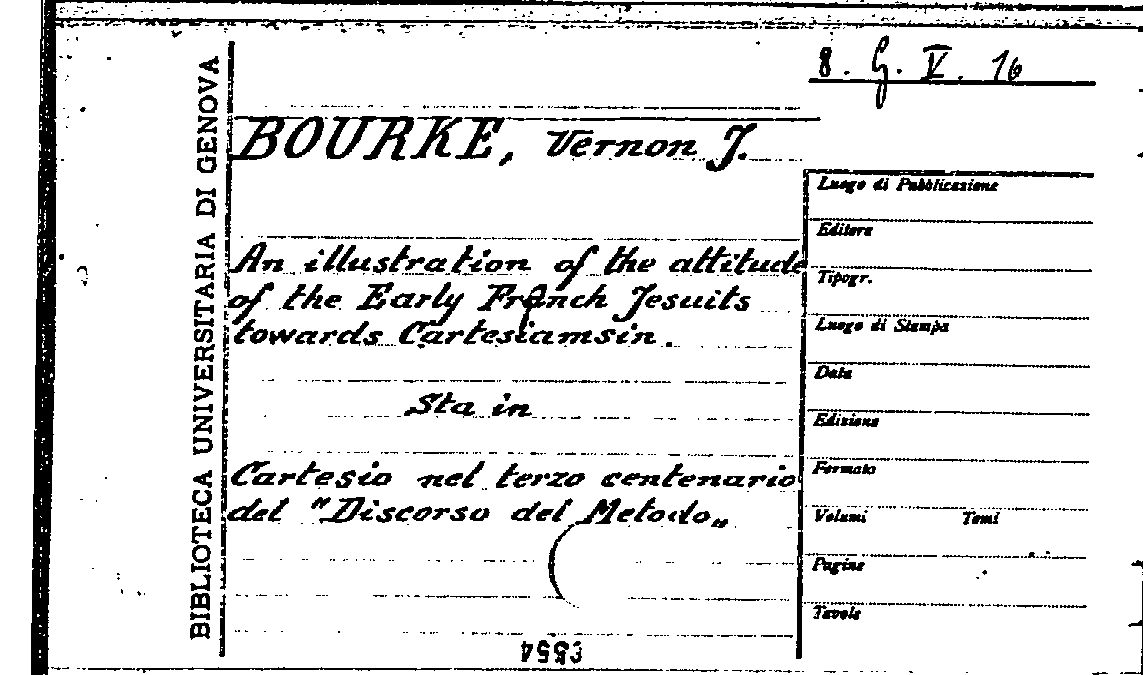 8. G. V. 16
BIBLIOTECA UNIVERSITARIA DI GENOVA
BOURKE, Vernon J.
An illustration of the attitude
of the Early French Jesuits
towards Cartesiamsin.
Sta in
Cartesio nel terzo centenario
del "Discorso del Metodo„
Luogo di Pubblicazione
Editore
Tipogr.
Luogo di Stampa
Data
Edizione
Formato
Volumi Tomi
Pagine
Tavole